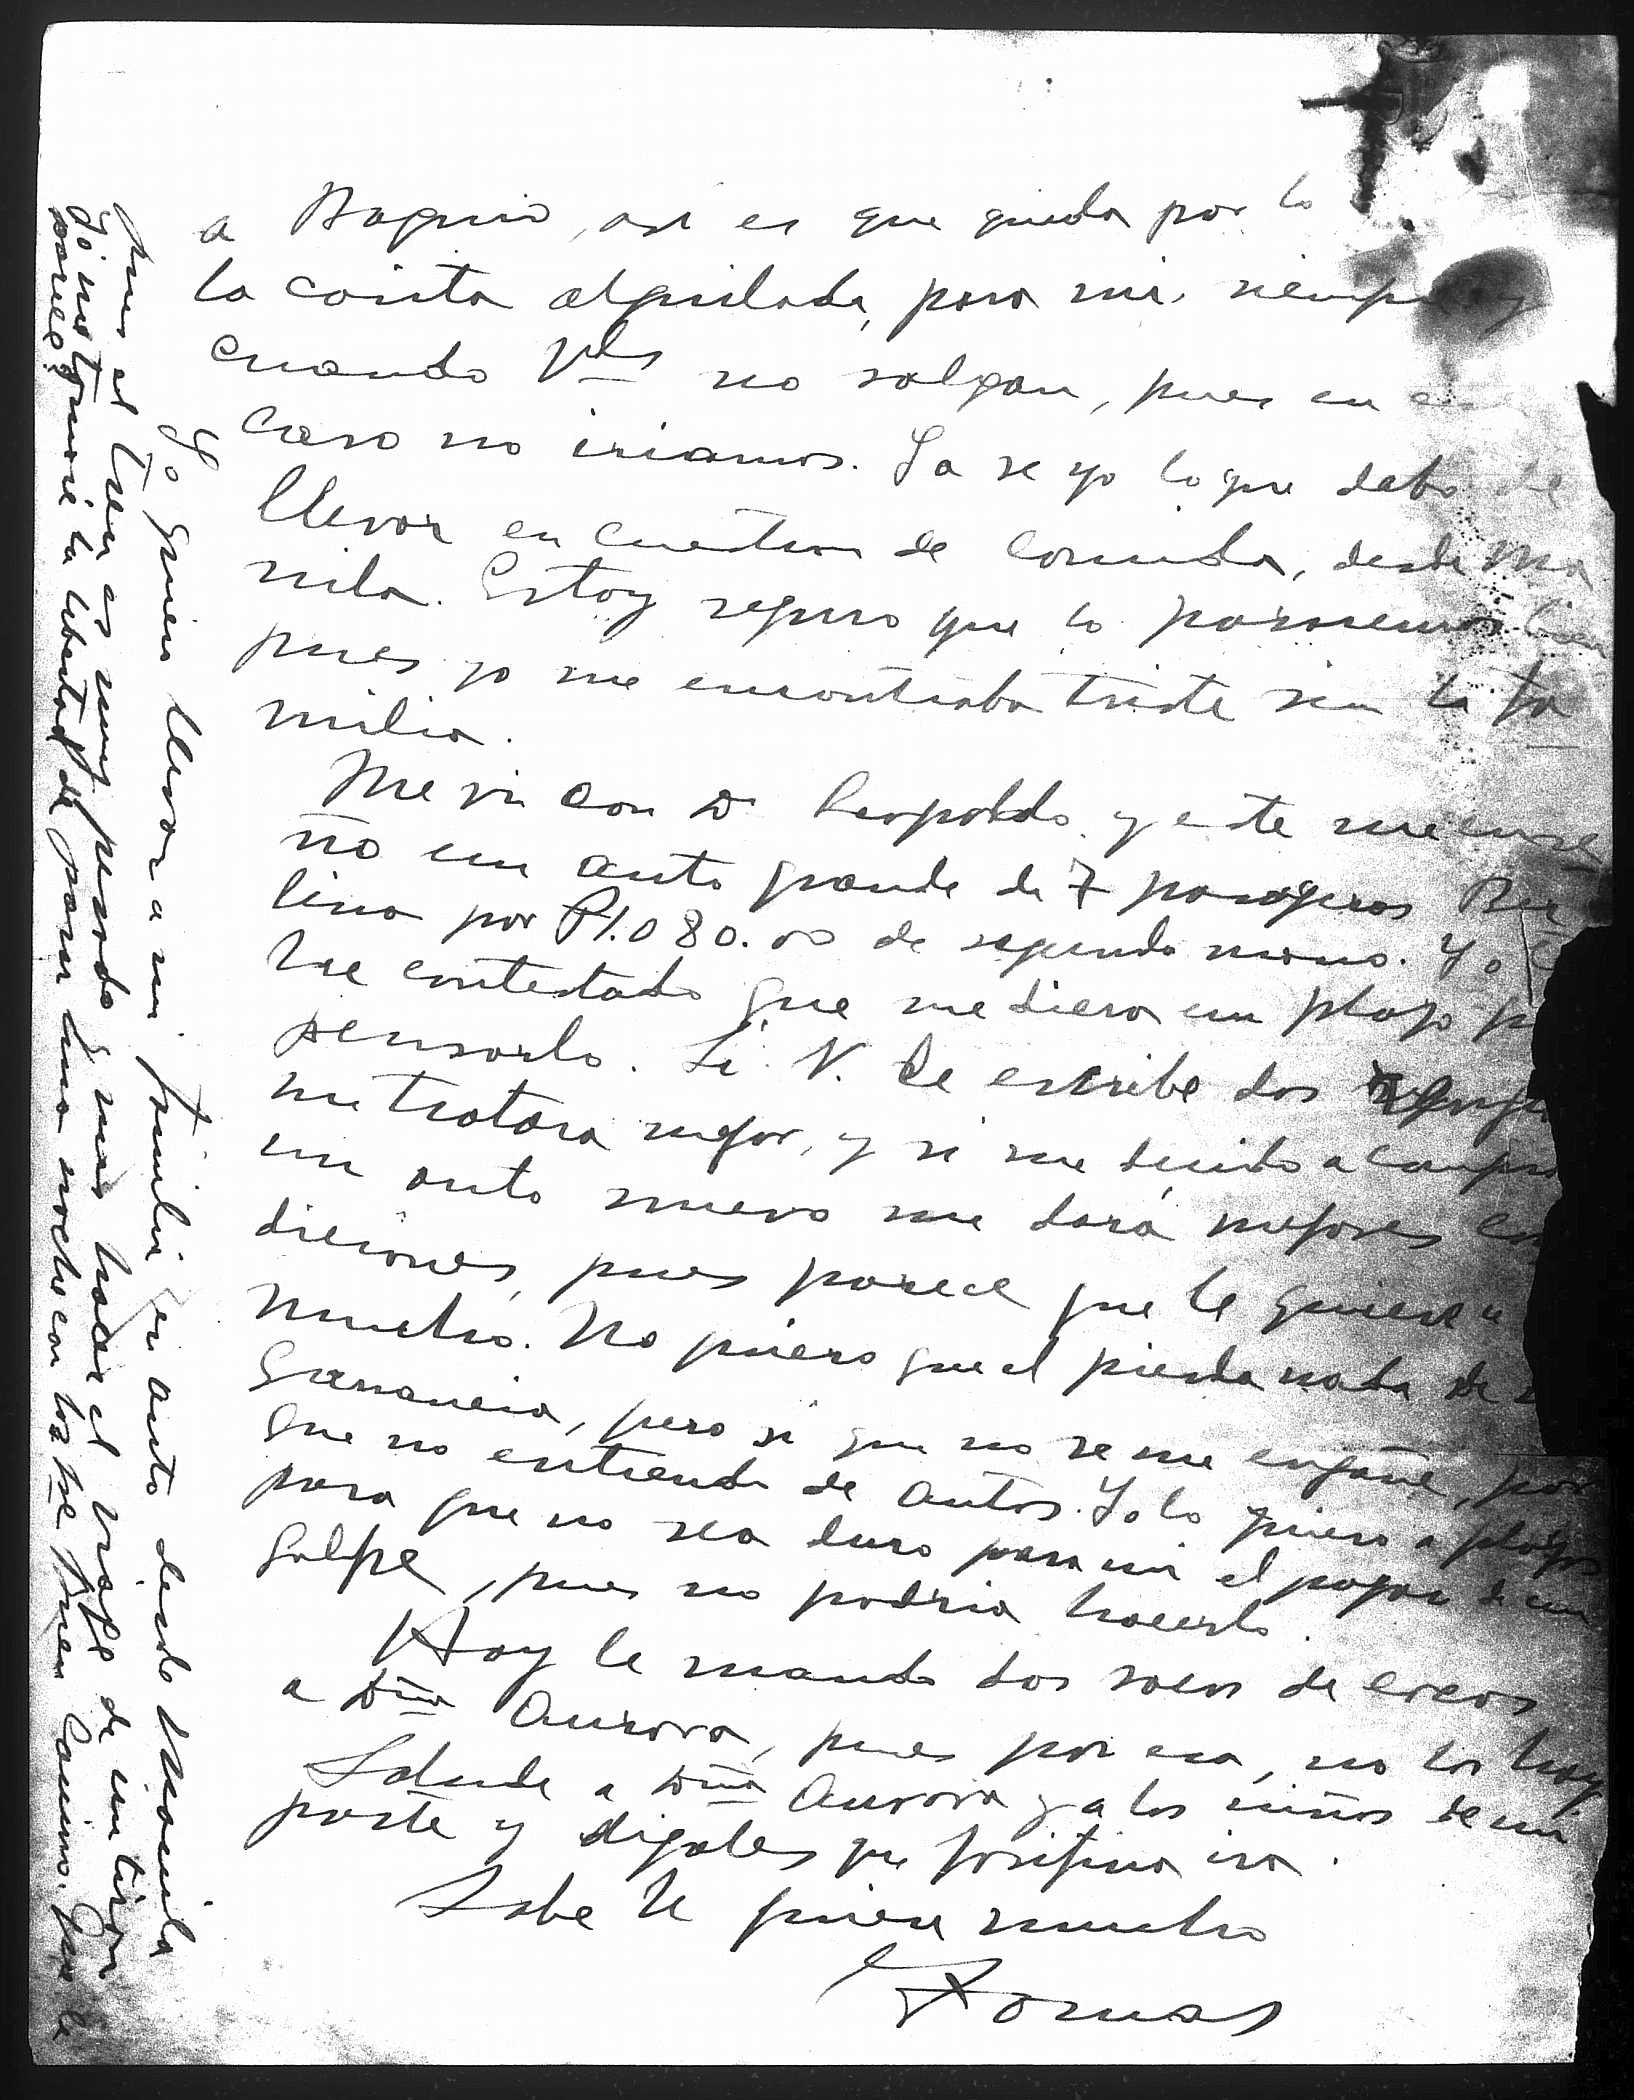 a Baguio, asi es que queda por lo
la casita alquilada, para mi, siempre y
cuando Vds no salgan, pues en ese
caso no iriamos. Ya se yo lo que debo de
llevar en cuestion de comida, desde Ma
nila. Estoy seguro que lo pasaremos bien
pues yo me encontraba triste sin la fa
milia.
Me vi con D. Leopoldo y este me ense
ño un auto grande de 7 pasageros
por P1.080.00 de segunda mano. Yo
he contestado que me diera un plazo
pensarlo. Si V. le escribe dos
me tratara mejor, y si me decido a comprar
un auto nuevo me dará mejores con
diciones, pues parece que le quiere a
mucho. No quiero que el pierda nada de
ganancia, pero si que no se me engañe, por
que no entiendo de autos. Yo lo quiero a plazos
para que no sea duro para mi el pagar de un
golpe, pues no podria hacerlo.
Hoy le mando dos sacos de cocos
a Dña Aurora, pues por esa, no los hay.
Salude a Dña Aurora y a los niños de mi
parte y digales que Josefina ira.
Sabe le quiere mucho
Tomas
Yo quiero llevar a mi familia en auto desde Manila
pues el tren es muy pesado y mas hacer el viage de un tiron
Yo me tomaré la libertad de pasar una noche con los
parece?